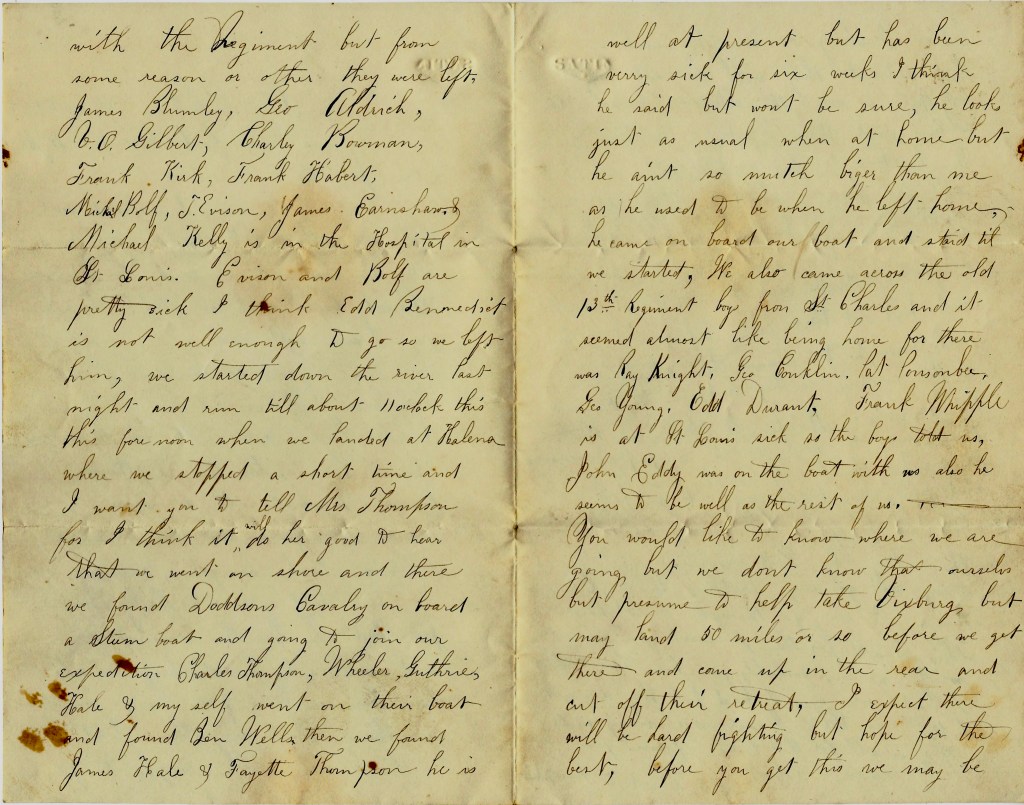 with the Regiment but from
some reason or other they were left,
James Blumley, Geo Aldrich,
V. O. Gilbert, Charley Bowman,
Frank Kirk, Frank Habert,
Michal Rolf, T. Evison, James Earnshaw, &
Michael Kelly is in the Hospital in
St Louis. Evison and Rolf are
pretty sick I think Edd Bennedict
is not well enough to go so we left
him, we started down the river last
night and run till about 11 oclock this
this fore noon when we landed at Halena
where we stopped a short time and
I want you to tell Mrs Thompson
for I think it will do her good to hear
that we went on shore and there
we found Doddsons Cavalry on board
a Stum boat and going to join our
expedition Charles Thompson, Wheeler, Guthrie,
Hale & my self went on their boat
and found Ben Wells, then we found
James Hale & Fayette Thompson he is
well at present but has been
verry sick for six weeks I think
he said but wont be sure, he look
just as usual when at home but
he aint so mutch biger than me
as he used to be when he left home,
he came on board our boat and staid til
we started, We also came across the old
13th Regiment boys from St Charles and it
seemed almost like being home for there
was Ray Knight, Geo Conklin. Pat Ponsonbee,
Geo Young, Edd Durant, Frank Whipple
is at St Louis sick so the boys told us,
John Eddy was on the boat with us also he
seems to be well as the rest of us.
You would like to know where we are
going but we dont know that ourselvs
but presume to help take Vixburg, but
may land 50 miles or so before we get
there and come up in the rear and
cut off their retreat, I expect there
will be hard fighting but hope for the
best, before you get this we may be